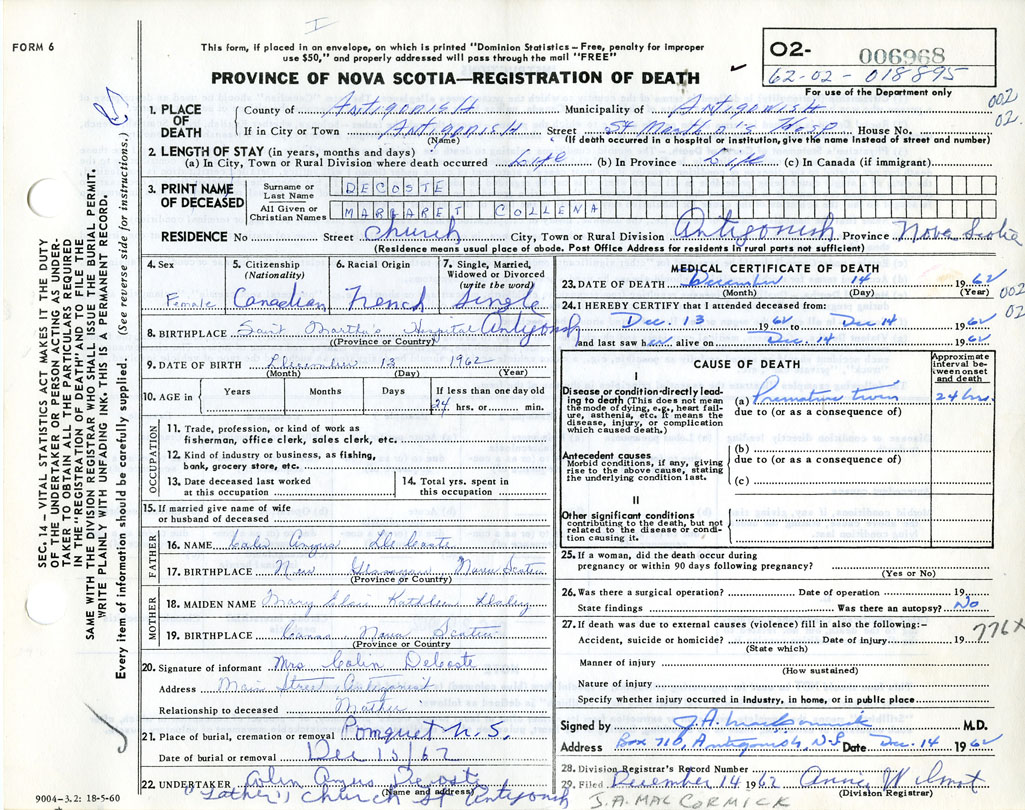 FORM 6
This form, if placed in an envelope, on which is printed "Dominion Statistics – Free, penalty for improper
use $50," and properly addressed will pass through the mail "FREE"
PROVINCE OF NOVA SCOTIA—REGISTRATION OF DEATH
02- 006968
62-02-018895
For use of the Department only
002
02.
SEC. 14 – VITAL STATISTICS ACT MAKES IT THE DUTY
OF THE UNDERTAKER OR PERSON ACTING AS UNDER-
TAKER TO OBTAIN ALL THE PARTICULARS REQUIRED
IN THE "REGISTRATION OF DEATH" AND TO FILE THE
SAME WITH THE DIVISION REGISTRAR WHO SHALL ISSUE THE BURIAL PERMIT.
WRITE PLAINLY WITH UNFADING INK. THIS IS A PERMANENT RECORD.
Every item of information should be carefully supplied. (See reverse side for instructions.)
1. PLACE OF DEATH
County of Antigonish Municipality of Antigonish
If in City or Town Antigonish Street St Martha's Hosp House No.
(Name) (If death occurred in a hospital or institution, give the name instead of street and number)
2. LENGTH OF STAY (in years, months and days)
(a) In City, Town or Rural Division where death occurred Life (b) In Province Life (c) In Canada (if immigrant)
3. PRINT NAME OF DECEASED
Surname or Last Name DECOSTE
All Given or Christian Names MARGARET COLLENA
RESIDENCE No Street Church City, Town or Rural Division Antigonish Province Nova Scotia
(Residence means usual place of abode. Post Office Address for residents in rural parts not sufficient)
4. Sex Female
5. Citizenship (Nationality) Canadian
6. Racial Origin French
7. Single, Married, Widowed or Divorced (write the word) Single
8. BIRTHPLACE Saint Martha's Hospital Antigonish
(Province or Country)
9. DATE OF BIRTH December 13 1962
(Month) (Day) (Year)
10. AGE in Years Months Days If less than one day old
24 hrs. or min.
OCCUPATION
11. Trade, profession, or kind of work as
fisherman, office clerk, sales clerk, etc.
12. Kind of industry or business, as fishing,
bank, grocery store, etc.
13. Date deceased last worked
at this occupation
14. Total yrs. spent in
this occupation
15. If married give name of wife
or husband of deceased
FATHER
16. NAME Colin Angus DeCoste
17. BIRTHPLACE New Glasgow Nova Scotia
(Province or Country)
MOTHER
18. MAIDEN NAME Mary Kathleen
19. BIRTHPLACE Canso Nova Scotia
(Province or Country)
20. Signature of informant Mrs Colin DeCoste
Address Main Street, Antigonish
Relationship to deceased Mother
21. Place of burial, cremation or removal Pomquet N.S.
Date of burial or removal Dec 15/62
22. UNDERTAKER Colin Angus Decoste
(Name and address)
"Father", Church St Antigonish
9004-3.2: 18-5-60
MEDICAL CERTIFICATE OF DEATH
23. DATE OF DEATH December 14 1962
(Month) (Day) (Year)
002
02
24. I HEREBY CERTIFY that I attended deceased from:
Dec. 13 1962 to Dec 14 1962
and last saw her alive on Dec. 14 1962
CAUSE OF DEATH
Approximate interval between onset and death
I
Disease or condition directly leading to death (This does not mean the mode of dying, e.g., heart failure, asthenia, etc. It means the disease, injury, or complication which caused death.)
(a) Premature twin 24 hrs.
due to (or as a consequence of)
Antecedent causes
Morbid conditions, if any, giving rise to the above cause, stating the underlying condition last.
(b)
due to (or as a consequence of)
(c)
II
Other significant conditions
contributing to the death, but not related to the disease or condition causing it.
25. If a woman, did the death occur during
pregnancy or within 90 days following pregnancy?
(Yes or No)
26. Was there a surgical operation? Date of operation 19
State findings Was there an autopsy? No
27. If death was due to external causes (violence) fill in also the following:–
776x
Accident, suicide or homicide? Date of injury 19
(State which)
Manner of injury
(How sustained)
Nature of injury
Specify whether injury occurred in industry, in home, or in public place
Signed by J.A. MacCormick M.D.
Address Box 710, Antigonish, N.S Date Dec. 14 1962
28. Division Registrar's Record Number
29. Filed December 14 1962 Anna
(Division Registrar)
J.A. MACCORMICK